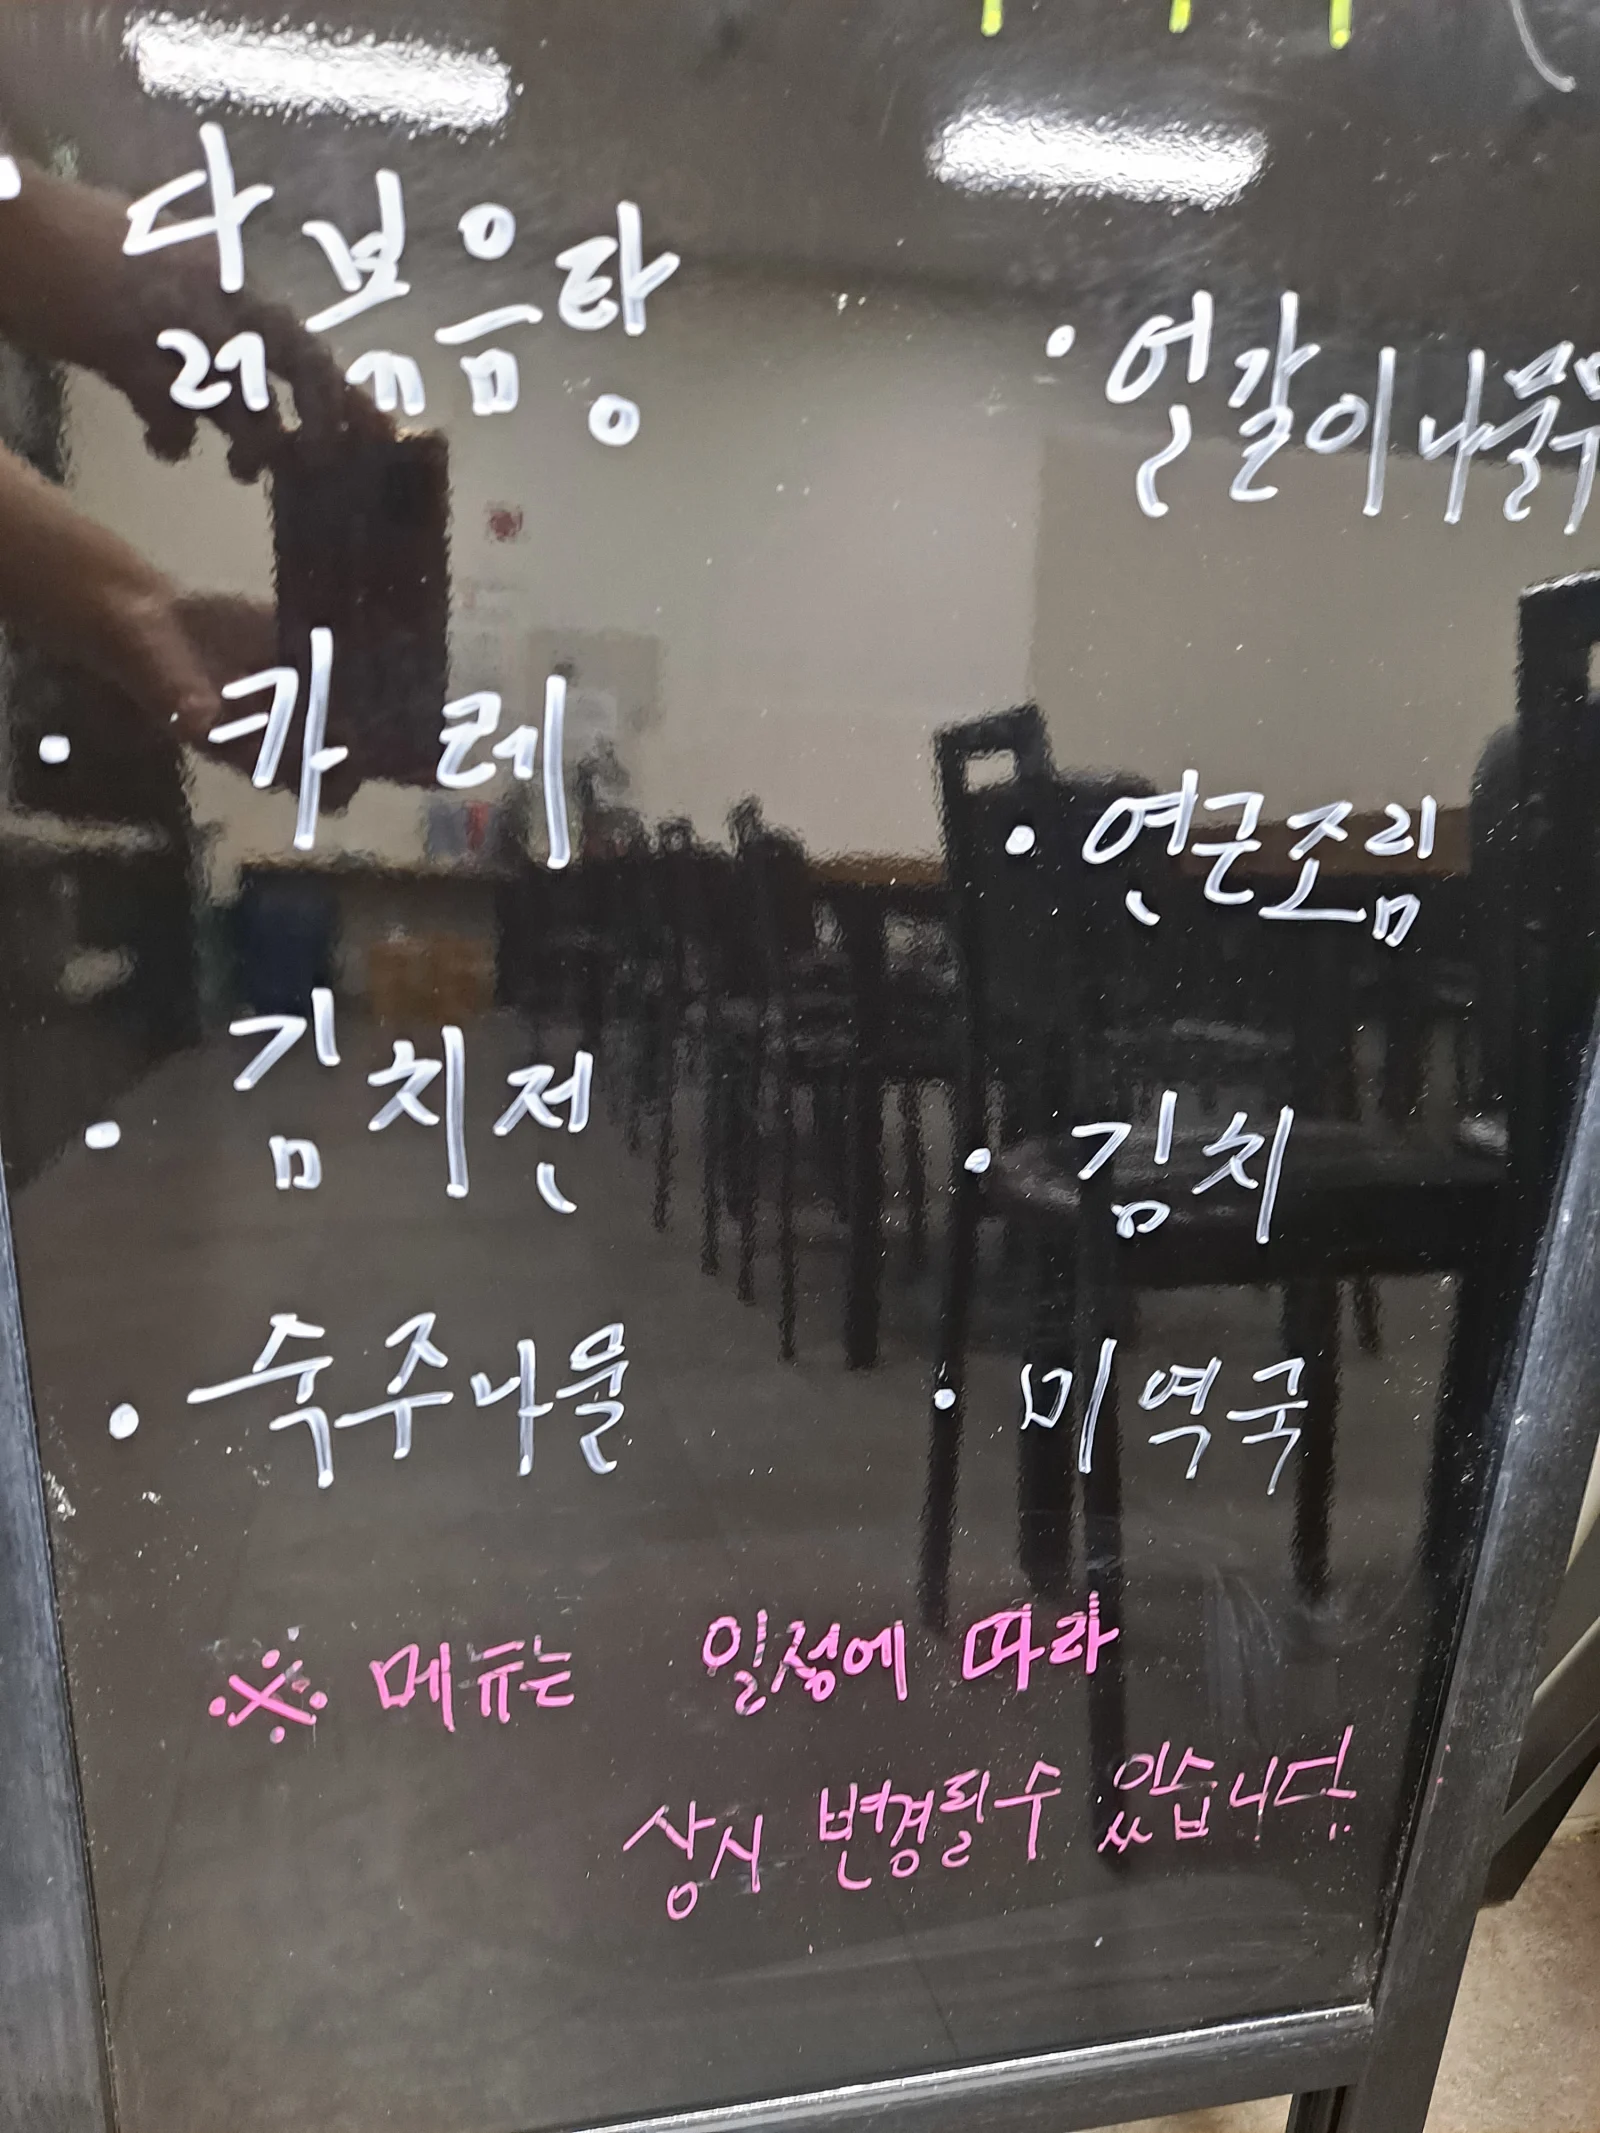 · 닭볶음탕
· 얼갈이나물무
· 카레
· 연근조림
· 김치전
· 김치
· 숙주나물
· 미역국
※ 메뉴는 일정에 따라
상시 변경될수 있습니다.